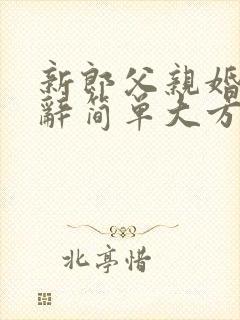 新郎父親婚
辭简单大方
北亭惜